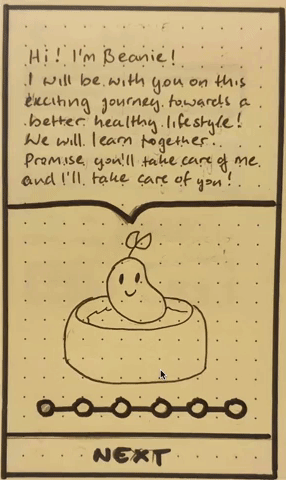 Hi! I'm Beanie!
I will be with you on this
exciting journey towards a
better healthy lifestyle!
We will learn together.
Promise you'll take care of me
and I'll take care of you!
NEXT